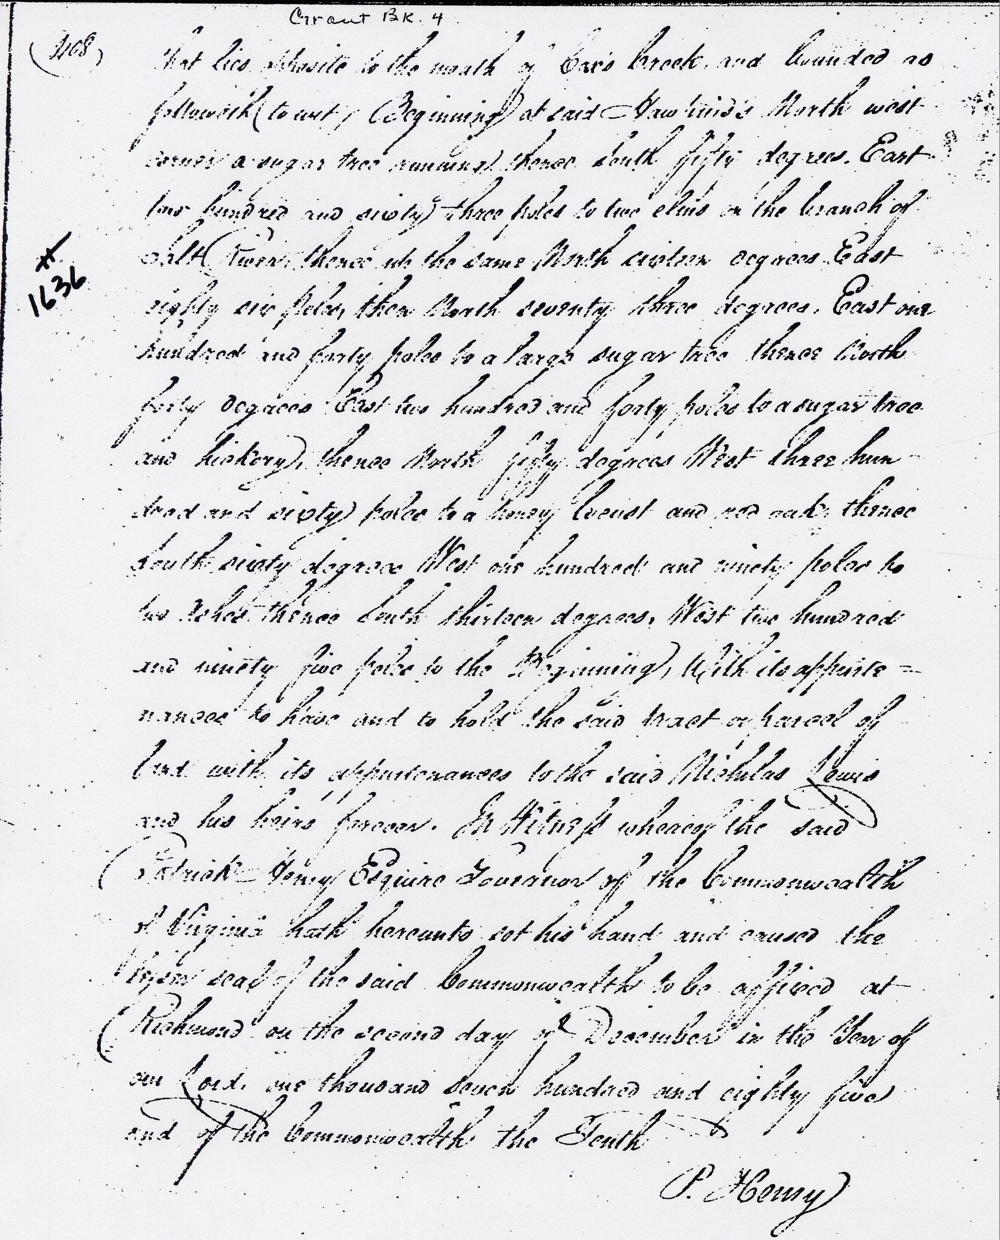 Grant BK. 4
(408) that lies opposite to the mouth of Cox's Creek, and bounded as
followeth (to wit, Beginning) at said Hawkins's North west
corner a sugar tree running thence South fifty degrees. East
two hundred and sixty three poles to two elms on the branch of
Salt River, thence up the same North sixteen degrees East
# 1636
eighty six poles, then North seventy three degrees. East one
hundred and forty poles to a large sugar tree thence North
forty degrees East two hundred and forty poles to a sugar tree
and hickory, thence North fifty degrees West three hun
dred and sixty poles to a honey locust and red oak thence
South sixty degrees West one hundred and ninety poles to
two Ashes thence South thirteen degrees, West two hundred
and ninety five poles to the Beginning, With its apperte =
nances to have and to hold the said tract or parcel of
land with its appurtenances to the said Nicholas Lewis
and his heirs forever. In Witness whereof the said
Patrick Henry Esquire Governor of the Commonwealth
of Virginia hath hereunto set his hand and caused the
seal of the said Commonwealth to be affixed at
Richmond on the second day of December in the Year of
our Lord, one thousand seven hundred and eighty five
and of the Commonwealth the Tenth
P. Henry